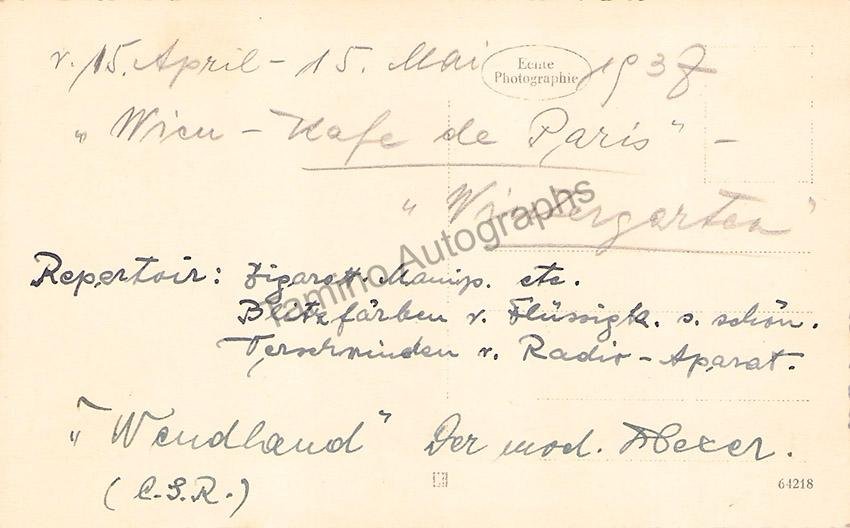 v. 15. April - 15. Mai 1937
Echte
Photographie
„Wien - Kafe de Paris" -
„Wintergarten"
Tamino Autographs
Repertoir: Zigarett. Manip. etc.
Blitzfärben v. Flüssigk. s. schön.
Verschwinden v. Radio-Aparat.
„Wendhand" Der mod. Hexer.
(C.S.R.)
64218